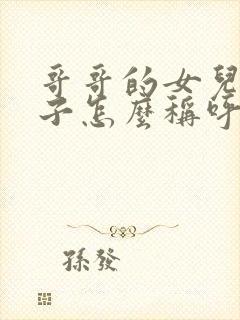 哥哥的女兒
子怎麼稱呼
孫發